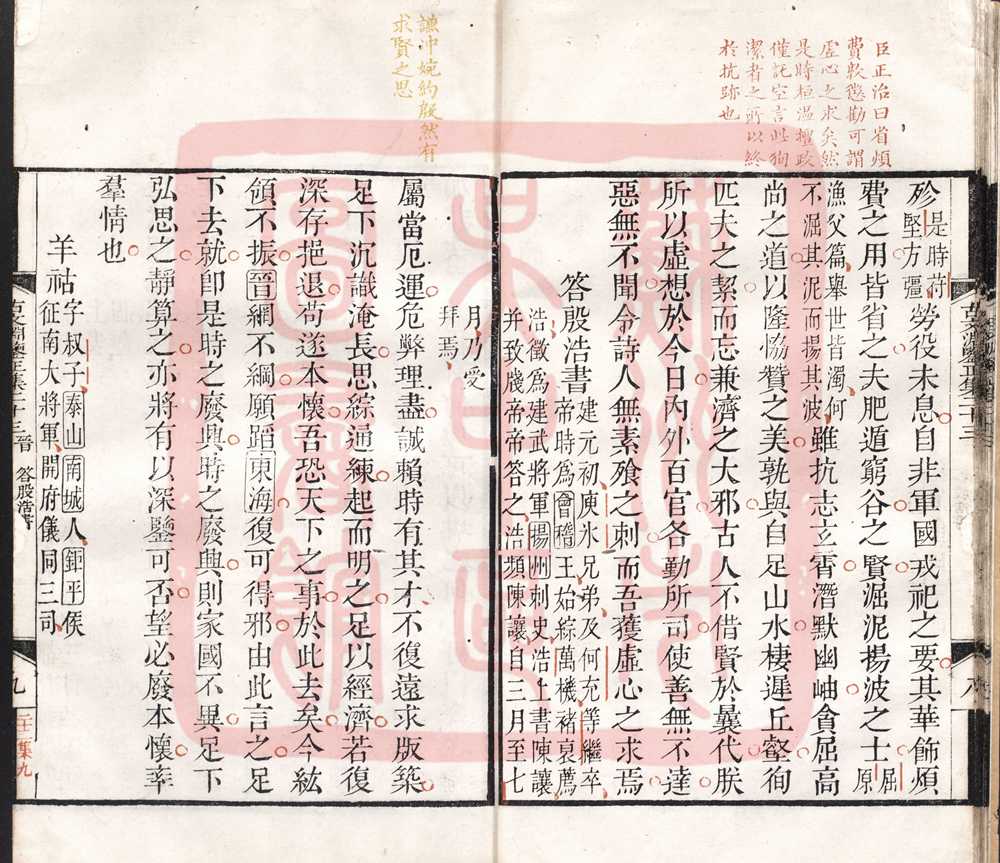 臣正治曰省煩
費敦懲勸可謂
虛心之求矣然
是時桓溫擅政
僅託空言此狥
潔者之所以終
於抗跡也
殄是時苻堅方彊勞役未息自非軍國戎祀之要其華飾煩
費之用皆省之夫肥遁窮谷之賢滛泥揚波之士屈原
漁父篇舉世皆濁何不淈其泥而揚其波雖抗志立霄潛默幽岫貪屈高
尚之道以隆協贊之美孰與自足山水棲遲丘壑徇
匹夫之絜而忘兼濟之大邪古人不借賢於曩代朕
所以虛想於今日內外百官各勤所司使善無不達
惡無不聞令詩人無素飱之刺而吾獲虛心之求焉
答殷浩書建元初庾氷兄弟及何充等繼卒
浩徵爲建武將軍揚州刺史浩上書陳讓
帝時爲會稽王始綜萬機褚裒薦
并致牋帝帝答之浩頻陳讓自三月至七
月乃受
拜焉
謙冲婉約殷然有
求賢之思
屬當厄運危弊理盡誠賴時有其才不復遠求版築
足下沉識淹長思綜通練起而明之足以經濟若復
深存挹退苟遂本懷吾恐天下之事於此去矣今紘
領不振晉網不綱願蹈東海復可得邪由此言之足
下去就卽是時之廢興時之廢興則家國不異足下
弘思之靜算之亦將有以深鑒可否望必廢本懷率
羣情也
羊祜字叔子泰山南城人鉅平侯
征南大將軍開府儀同三司
古文淵鑒正集二十三 晉 答殷浩書
九
二十三集九
古文淵鑒正集二十三
八